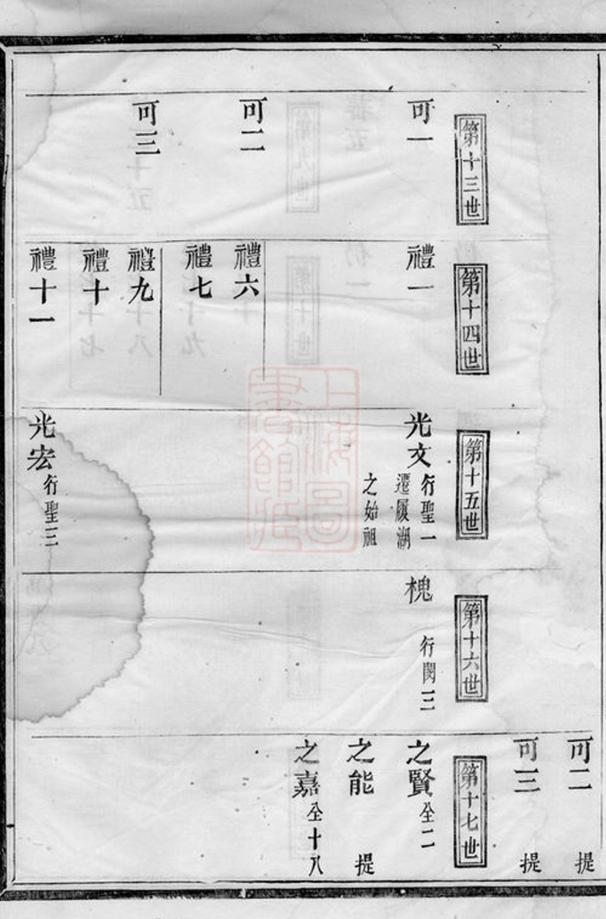 可二 提
可三 提
第十三世
可一
可二
可三
第十四世
禮一
禮六
禮七
禮九
禮十
禮十一
第十五世
光文 行聖一
遷履湖
之始祖
光宏 行聖三
第十六世
槐 行閔三
第十七世
之賢 仝二
之能 提
之嘉 仝十八
上海圖
書館藏